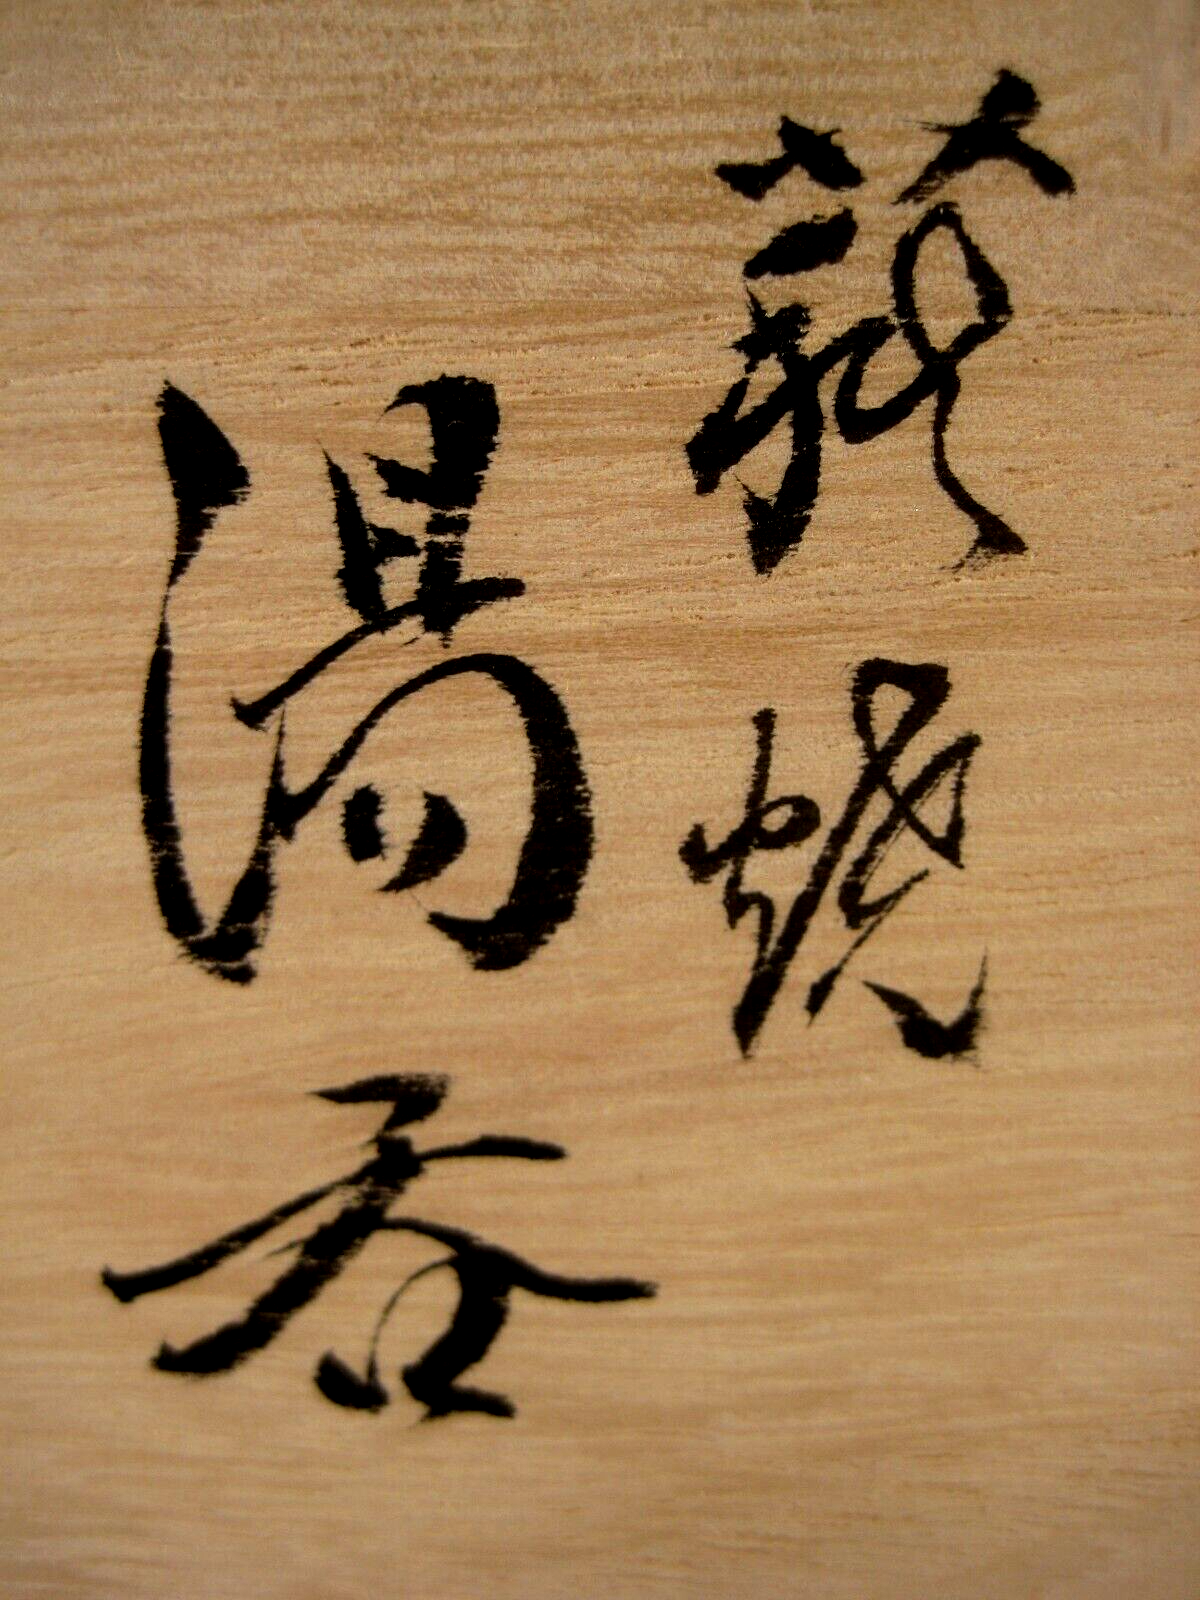 萩焼
湯呑